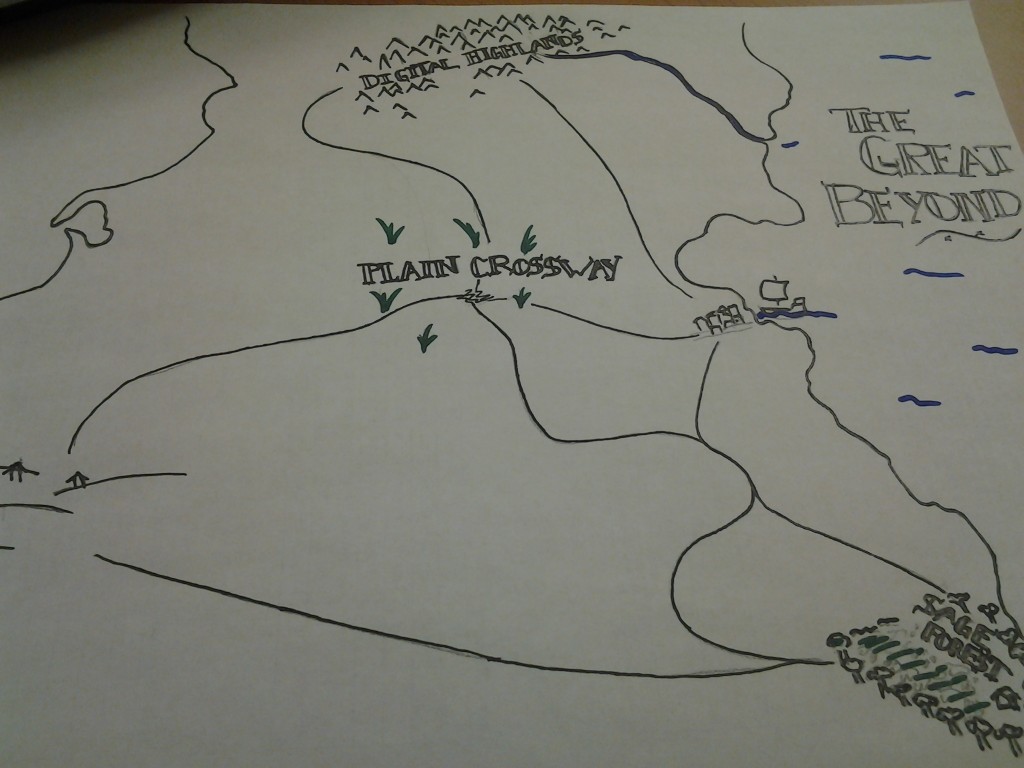 DIGITAL HIGHLANDS
THE
GREAT
BEYOND
PLAIN CROSSWAY
FOREST